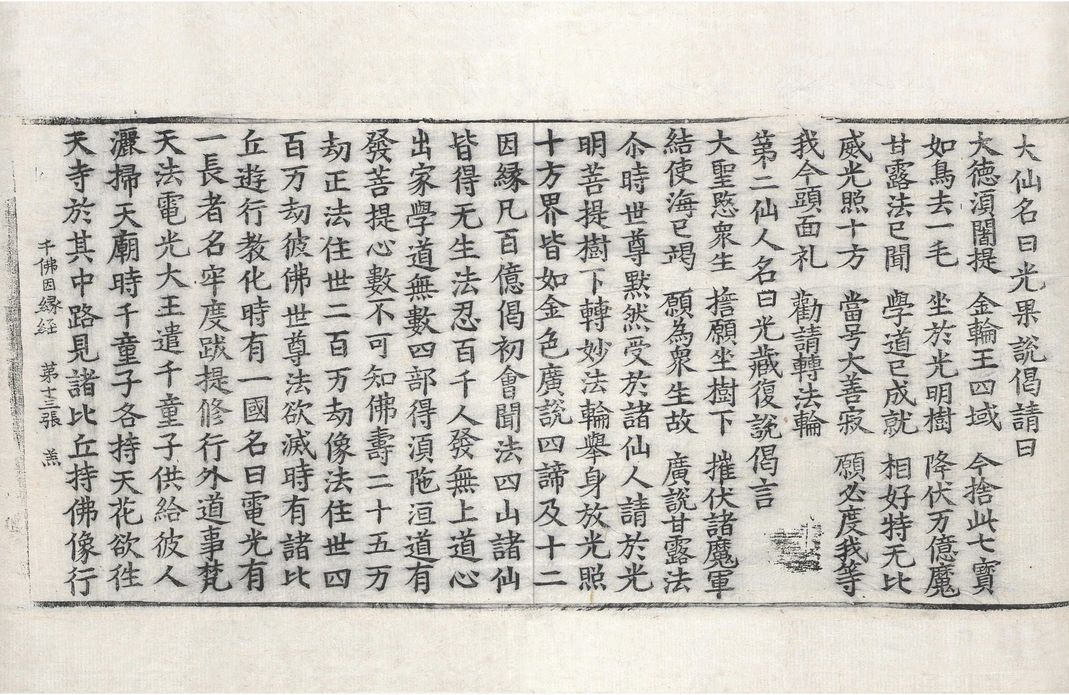 大仙名曰光果說偈請曰
大德湏闍提　金輪王四域　今捨此七寶
如鳥去一毛　坐於光明樹　降伏万億魔
甘露法已聞　學道已成就　相好特无比
威光照十方　當号大善寂　願必度我等
我今頭面礼　勸請轉法輪
第二仙人名曰光藏復說偈言
大聖愍衆生　擔願坐樹下　摧伏諸魔軍
結使海已竭　願為衆生故　廣說甘露法
尒時世尊默然受於諸仙人請於光
明菩提樹下轉妙法輪舉身放光照
十方界皆如金色廣說四諦及十二
因縁凡百億偈初會聞法四山諸仙
皆得无生法忍百千人發無上道心
出家學道無數四部得湏陁洹道有
發菩提心數不可知佛壽二十五万
劫正法住世二百万劫像法住世四
百万劫彼佛世尊法欲滅時有諸比
丘遊行教化時有一國名曰電光有
一長者名牢度跋提修行外道事梵
天法電光大王遣千童子供給彼人
灑掃天廟時千童子各持天花欲徃
天寺於其中路見諸比丘持佛像行
千佛因縁経　第十三張　羔